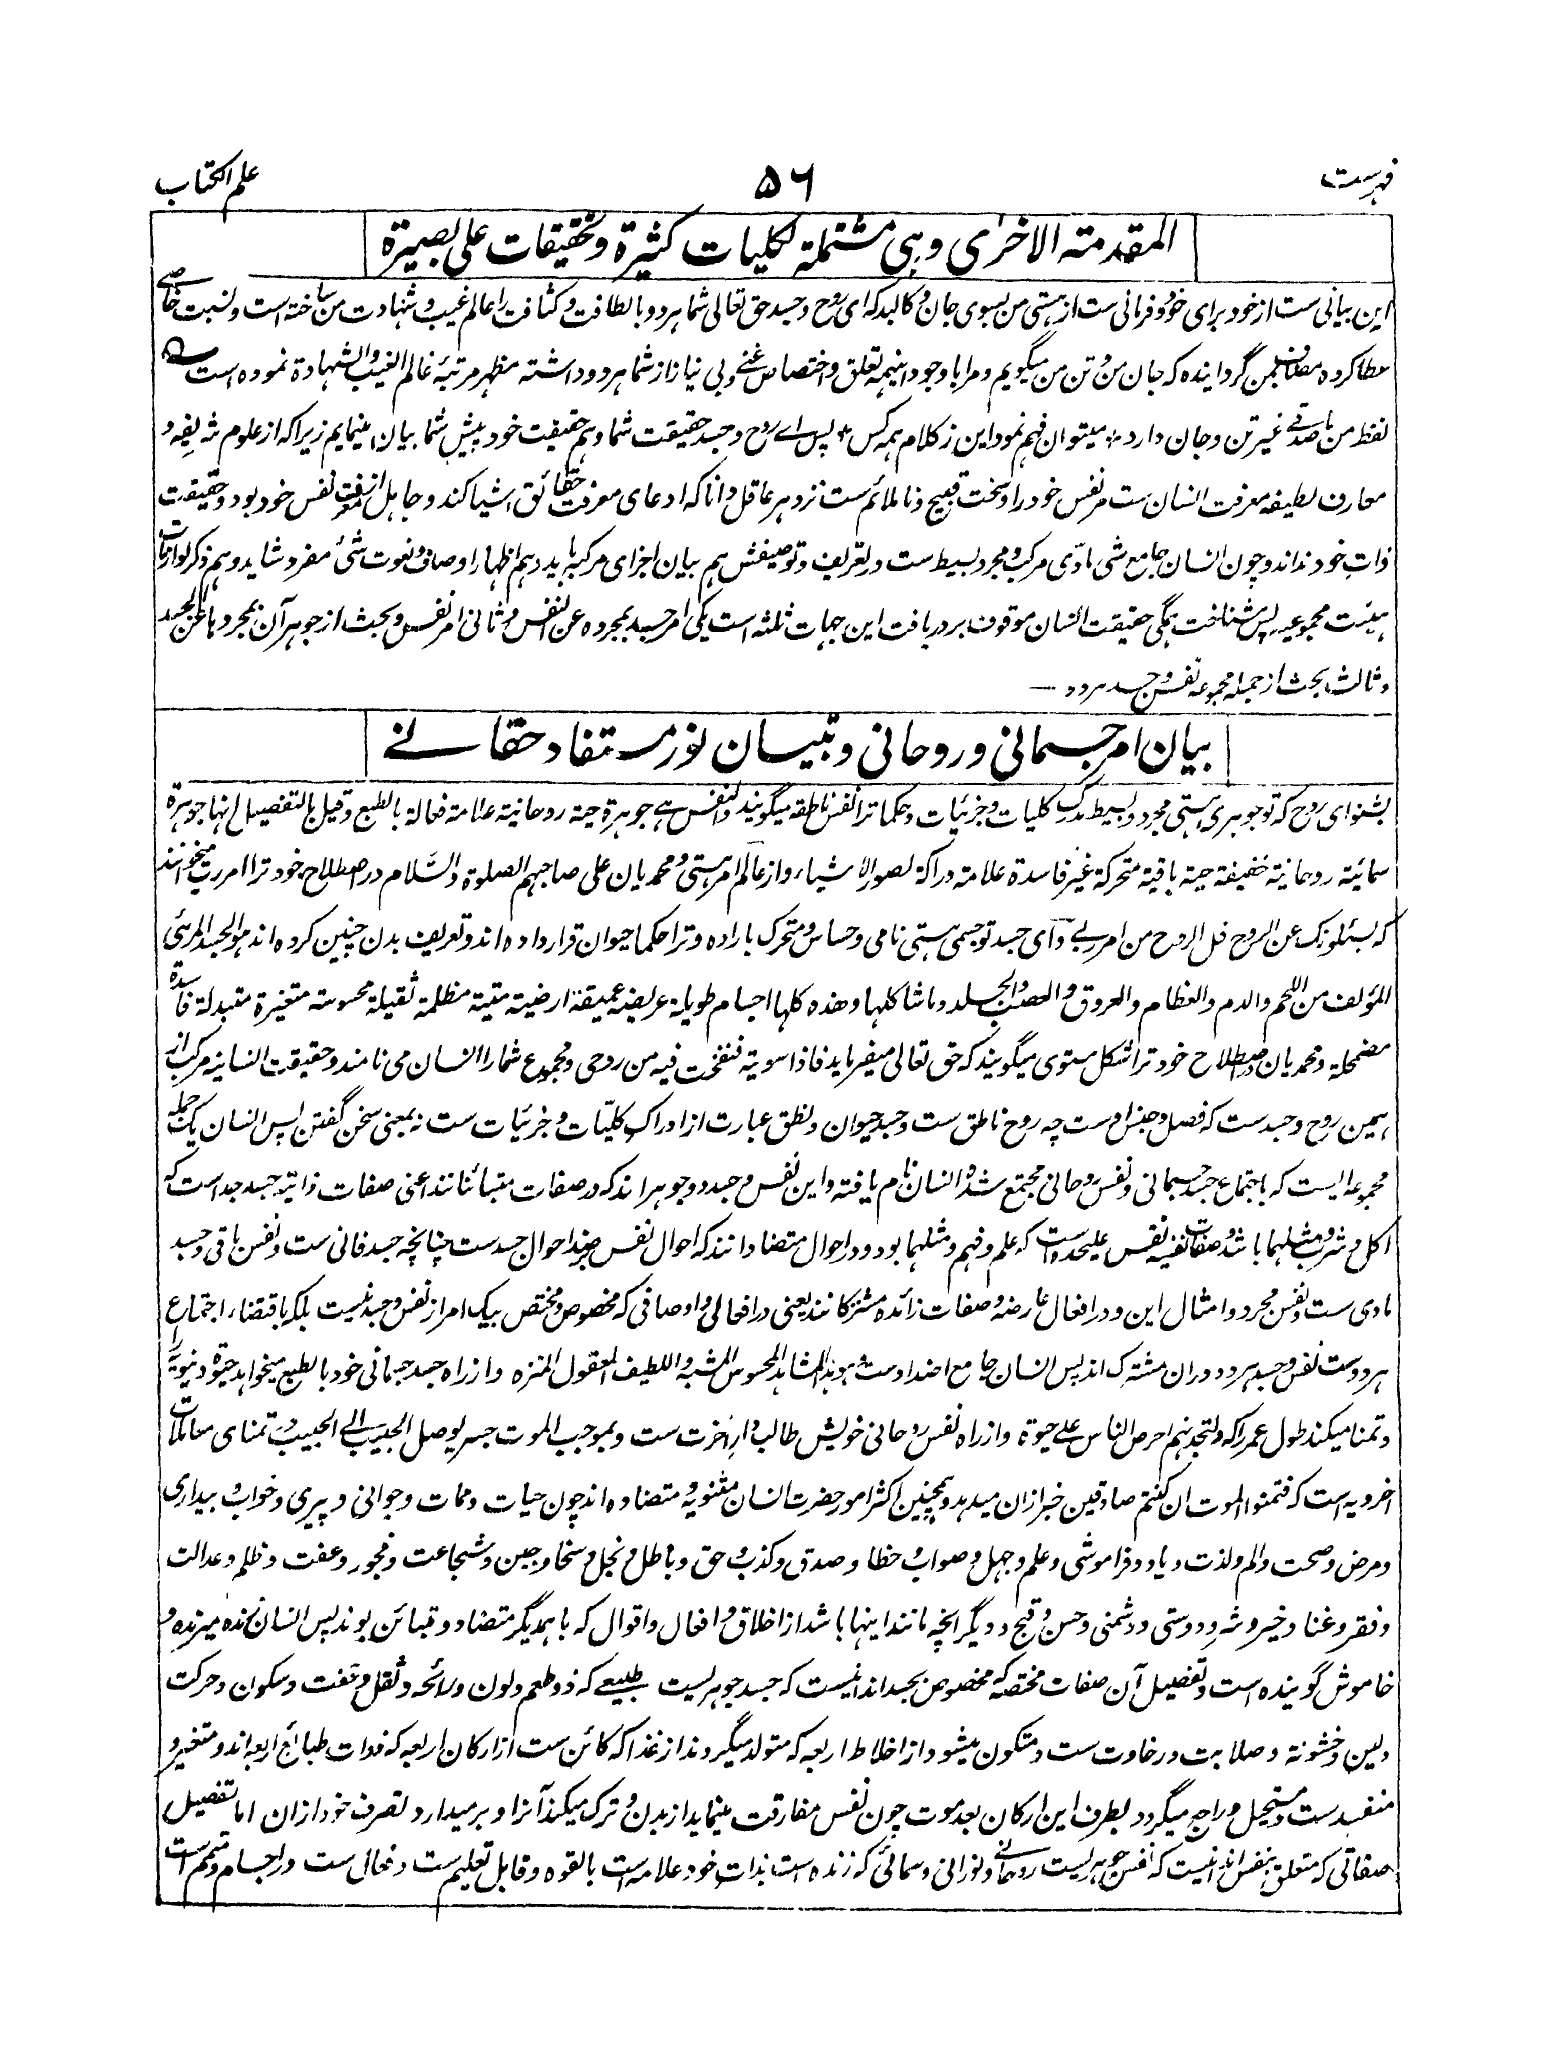 فهرست
۵۶
علم الکتاب
المقدمته الاخرٰی وہی مشتملة لکلیات کثیرة وتحقیقات علی بصیرة
این بیانی ست از خود برای خود و فرمانی ست از ہستی من بسوی جان و کالبد که ای روح وجسد حق تعالی شما ہر دو را بالطافت و کثافت را عالم غیب و شہادت من ساخته است و نسبت خاصے
عطا کرده مضاف بمن گردانیده که جان من و تن من میگویم و مرا باوجود اینہمه تعلق و اختصاص غنے و بی نیاز از شما ہر دو داشته مظہر مرتبۂ عالم الغیب والشہادة نموده است ه
لفظ من باصدقے غیر تن وجان دارد * میتوان فہم نمود این ز کلام ہمه کس * پس اے روح وجسد حقیقت شما وہم حقیقت خود پیش شما بیان مینمایم زیرا که از علوم شریفه و
معارف لطیفه معرفت انسان ست مر نفس خود را و سخت قبیح و ناملائم ست نزد ہر عاقل و دانا که ادعای معرفت حقائق اشیا کند و جاہل از معرفت نفس خود بود و حقیقت
ذات خود نداند و چون انسان جامع شی مادّی مرکب و مجرد بسیط ست در تعریف و توصیفش ہم بیان اجزای مرکبه باید وہم اظہار اوصاف و نعوت شئ مفرد شاید وہم ذکر لوازمات
ہیئت مجموعیه پس شناخت ہمگی حقیقت انسان موقوف بر دریافت این جہات ثلثه است یکی امر جسد بمجرده عن النفس و ثانی امر نفس و بحث از جوہر آن بمجردہا عن الجسد
و ثالث بحث از جمله مجموعه نفس و جسد ہر دو —
بیان امر جسمانی و روحانی و تبیان نور مستفاد حقانے
بشنو ای روح که تو جوہری ہستی مجرد و بسیط مدرک کلیات و جزئیات و حکما ترا نفس ناطقه میگویند والنفس ہے جوہرة حیة روحانیة علامة فعالة بالطبع وقیل بالتفصیل انہا جوہرة
سمائیة روحانیة خفیفة حیة باقیة متحرکة غیر فاسدة علامة دراکة لصور الاشیاء و از عالم امر ہستی و محمدیان علی صاحبہم الصلوة والسلام در اصطلاح خود ترا امر رب میخوانند
که یسئلونک عن الروح قل الروح من امر ربے و ای جسد تو جسمی ہستی نامی و حساس و متحرک باراده و ترا حکما حیوان قرار داده اند و تعریف بدن چنین کرده اند ہو الجسد المرئی
المؤلف من اللحم والدم والعظام والعروق والعصب والجلد وماشاکلہا وہذہ کلہا اجسام طویلة عریضة عمیقة ارضیة میتة مظلمة ثقیلة محسوسة متغیرة متبدلة فاسدة
مضمحلة و محمدیان در اصطلاح خود ترا شکل مستوی میگویند که حق تعالی میفرماید فاذا سویته فنفخت فیه من روحی و مجموع شما را انسان می نامند و حقیقت انسانیه مرکب از
ہمین روح و جسد ست که فصل و جنس اوست چه روح ناطق ست و جسد حیوان و نطق عبارت از ادراک کلیّات و جزئیات ست نه بمعنی سخن گفتن پس انسان یک جمله
مجموعه ایست که باجتماع جسد جسمانی و نفس روحانی مجتمع شده و انسان نام یافته و این نفس و جسد دو جوہر اند که در صفات متبائنانند اعنی صفات ذاتیه جسد جداست که
اکل و شرب و مثلہما باشد و صفات نفسیه نفس علیحده است که علم و فہم و مثلہما بود و در احوال متضادانند که احوال نفس ضد احوال جسد ست چنانچه جسد فانی ست و نفس باقی و جسد
مادی ست و نفس مجرد و امثال این و در افعال عارضه و صفات زائده مشترکانند یعنی در افعالی و اوصافی که مخصوص و مختص بیک امر از نفس و جسد نیست بلکه باقتضاء اجتماع
ہر دوست نفس و جسد ہر دو دران مشترک اند پس انسان جامع اضداد ست ہو ہذا المشاہد المحسوس المشبه واللطیف المعقول المنزه و از راه جسد جسمانی خود بالطبع میخواہد حیوة دنیویة را
و تمنا میکند طول عمر را که ولتجدنہم احرص الناس علے حیوة و از راه نفس روحانی خویش طالب دار آخرت ست و بموجب الموت جسر یوصل الحبیب الے الحبیب در تمنای معاملات
اخرویه است که فتمنوا الموت ان کنتم صادقین خبر ازان میدہد و ہمچنین اکثر امور حضرت انسان مثنویه و متضاده اند چون حیات و ممات و جوانی و پیری و خواب و بیداری
و مرض و صحت و الم و لذت و یاد و فراموشی و علم و جہل و صواب و خطا و صدق و کذب و حق و باطل و بخل و سخا و جبن و شجاعت و فجور و عفت و ظلم و عدالت
و فقر و غنا و خیر و شر و دوستی و دشمنی و حسن و قبح و دیگر انچه مانند اینہا باشد از اخلاق و افعال و اقوال که باہمدیگر متضاد و متبائن بوند پس انسان زنده میرنده و
خاموش گوینده است و تفصیل آن صفات مختصه که مخصوص بجسد اند اینست که جسد جوہریست طبیعے که ذو طعم و لون و رائحه و ثقل و خفت و سکون و حرکت
و لین و خشونة و صلابت و رخاوت ست و متکون میشود از اخلاط اربعه که متولد میگردند از غذا که کائن ست از ارکان اربعه که ذوات طبائع اربعه اند و متغیر و
منفسد ست و مستحیل و راجع میگردد بطرف این ارکان بعد موت چون نفس مفارقت مینماید از بدن و ترک میکند آنرا و بر میدارد تصرف خود ازان اما تفصیل
صفاتی که متعلق بنفس اند اینست که نفس جوہریست روحانے و نورانی و سمائی که زنده است بذات خود علامه است بالقوه و قابل تعلیم ست و فعال ست در اجسام و متمم است